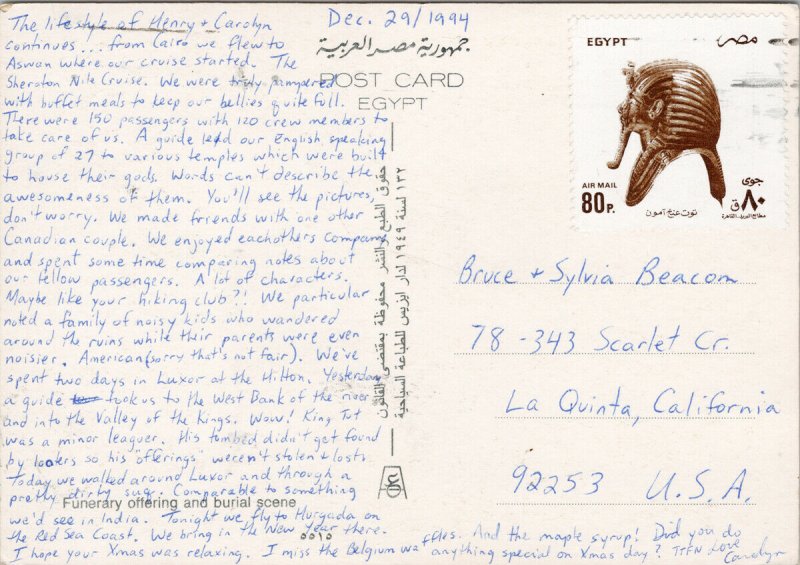 The lifestyle of Henry + Carolyn
continues... from Cairo we flew to
Aswan where our cruise started. The
Sheraton Nile Cruise. We were truly pampered
with buffet meals to keep our bellies quite full.
There were 150 passengers with 120 crew members to
take care of us. A guide lead our English speaking
group of 27 to various temples which were built
to house their gods. Words can't describe the
awesomeness of them. You'll see the pictures,
don't worry. We made friends with one other
Canadian couple. We enjoyed eachothers company
and spent some time comparing notes about
our fellow passengers. A lot of characters.
Maybe like your hiking club?! We particular
noted a family of noisy kids who wandered
around the ruins while their parents were even
noisier. American (sorry that's not fair). We've
spent two days in Luxor at the Hilton. Yesterday
a guide took us to the West Bank of the river
and into the Valley of the Kings. Wow! King Tut
was a minor leaguer. His tombed didn't get found
by looters so his "offerings" weren't stolen + lost.
Today we walked around Luxor and through a
pretty dirty suq. Comparable to something
we'd see in India. Tonight we fly to Hurgada on
the Red Sea Coast. We bring in the New Year there.
I hope your Xmas was relaxing. I miss the Belgium waffles. And the maple syrup! Did you do
anything special on Xmas day? TTFN Love
Carolyn
Dec. 29/1994
جمهورية مصر العربية
POST CARD
EGYPT
حقوق الطبع والنشر محفوظة بمقتضى القانون
١٣٢ لسنة ١٩٤٩ لدار ايزيس للطباعة السياحية
Funerary offering and burial scene
5515
EGYPT مصر
AIR MAIL
80 P.
جوى
٨٠ ق
توت عنخ آمون
مطابع البريد - القاهرة
Bruce + Sylvia Beacom
78-343 Scarlet Cr.
La Quinta, California
92253 U.S.A.